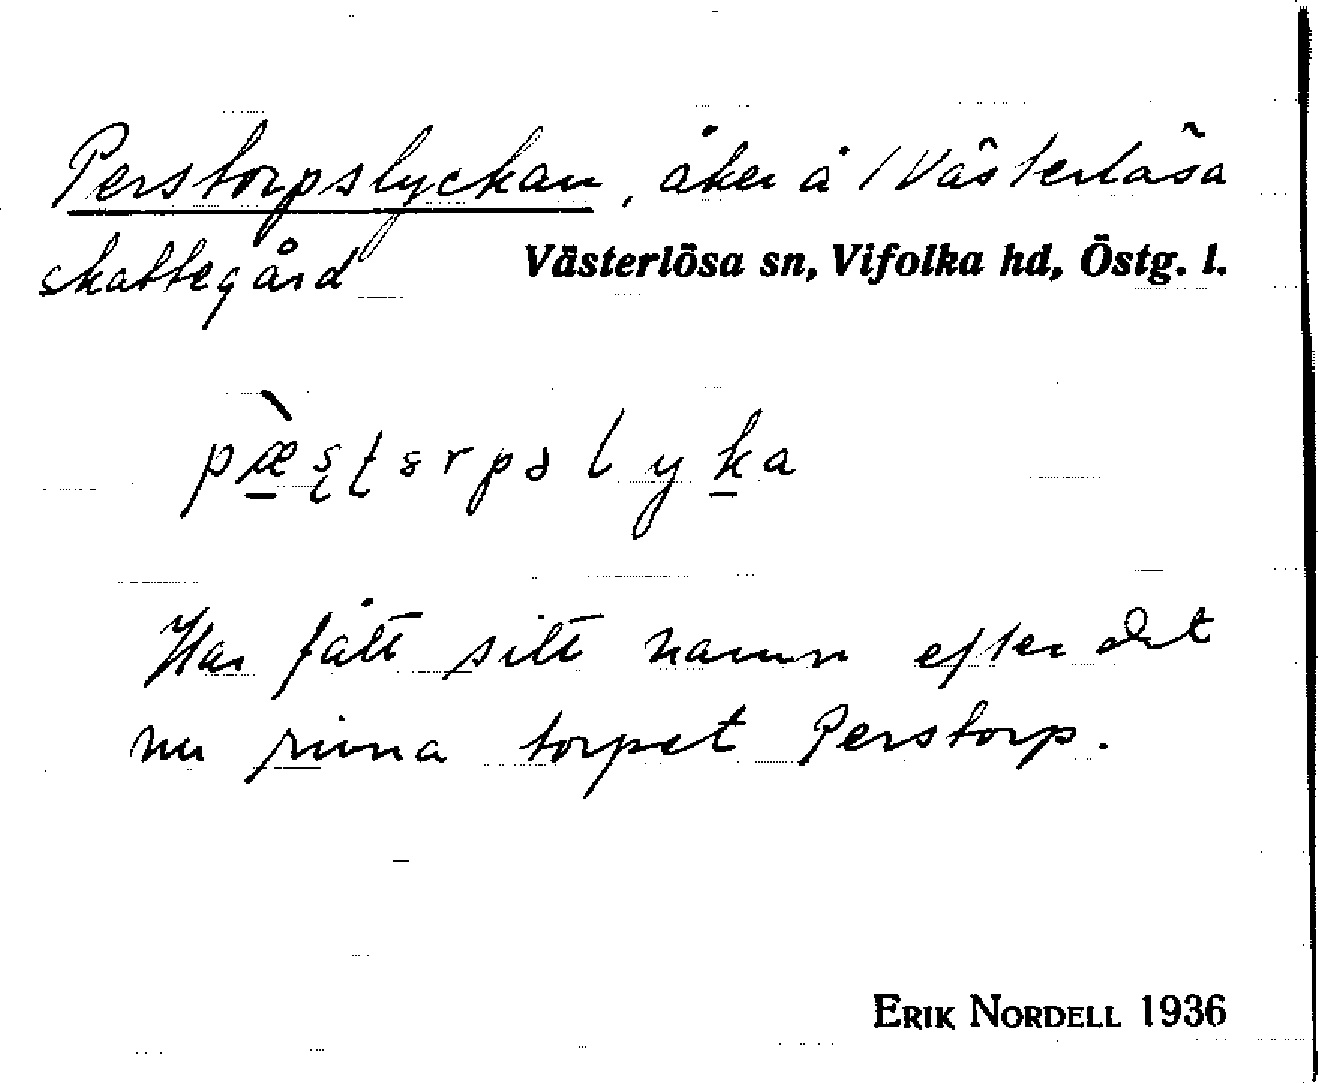 Perstorpslyckan, åker å Västerlösa
skattegård Västerlösa sn, Vifolka hd, Östg. l.
Har fått sitt namn efter det
nu rivna torpet Perstorp.
ERIK NORDELL 1936